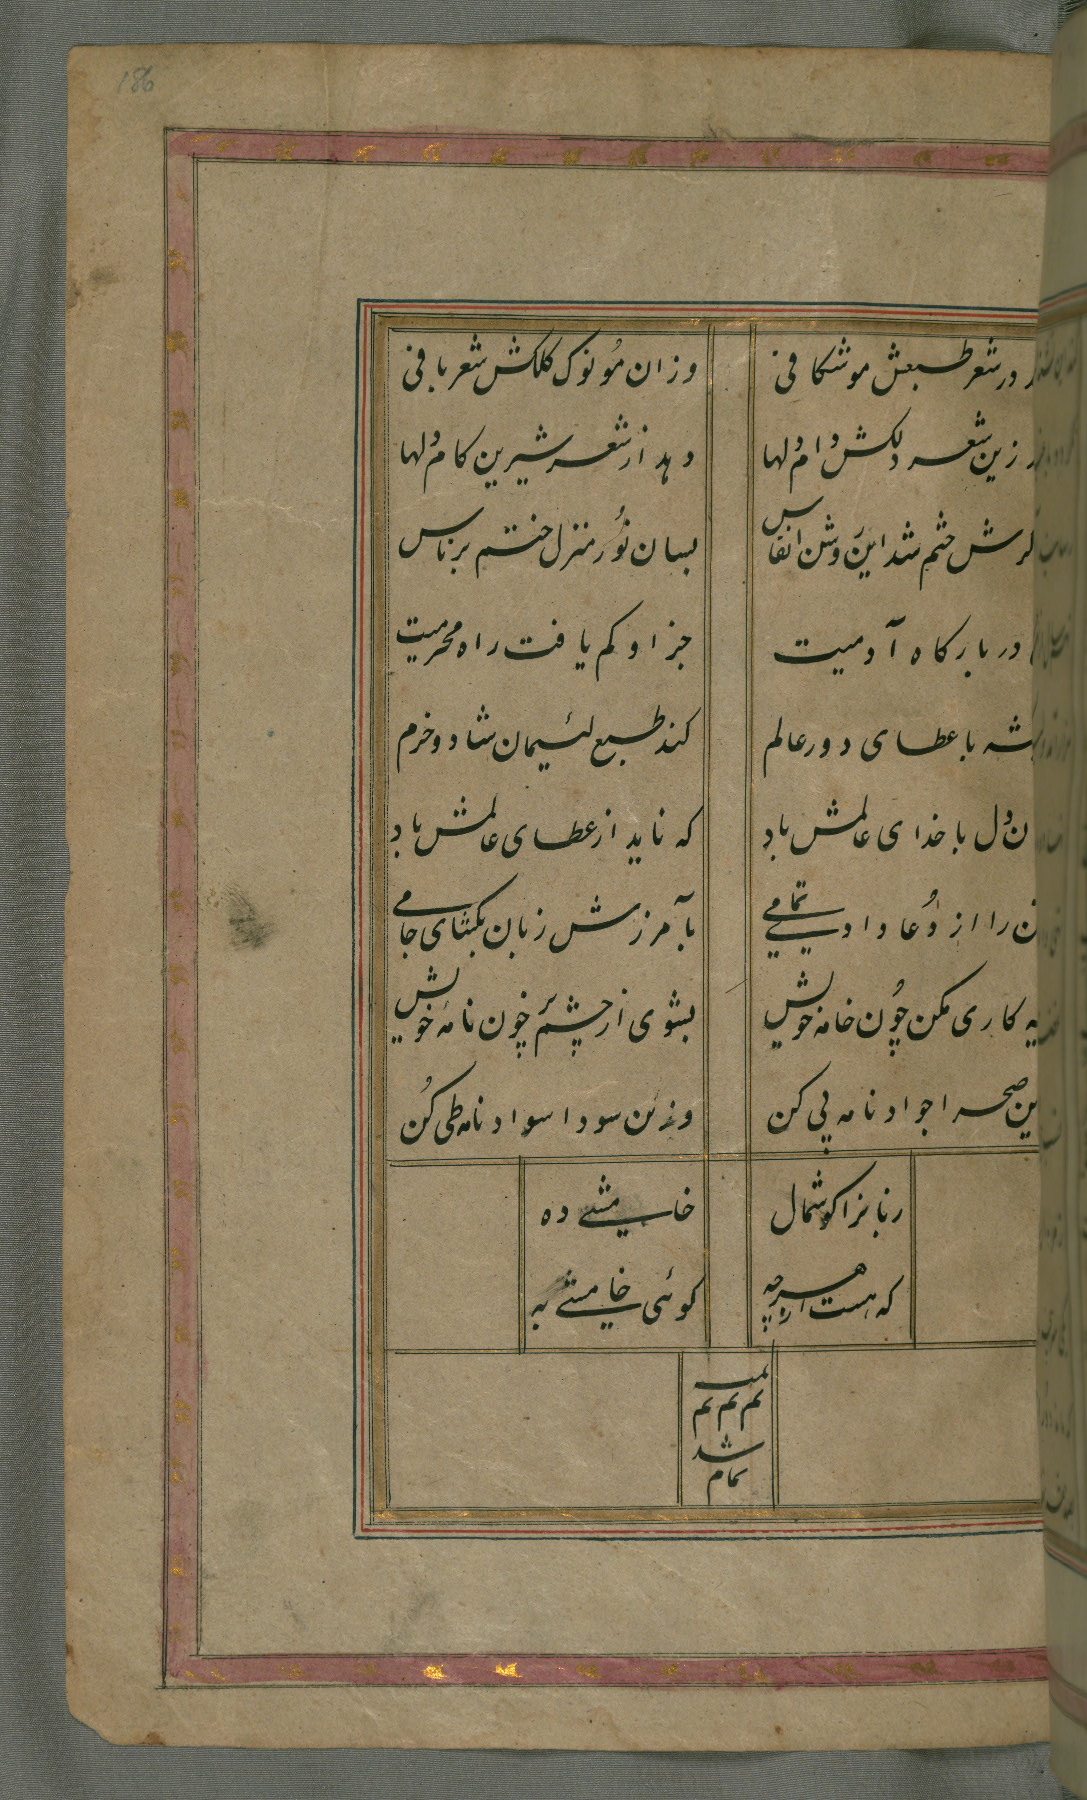 186
در شعر طبعش موشکافی
وزان مو نوک کلکش شعربافی
زین شعر دلکش دام دلها
دهد از شعر شیرین کام دلها
ختم شد این روشن انفاس
بسان نور منزل ختم برناس
در بارکاه آدمیت
جز او کم یافت راه محرمیت
با عطای دور عالم
کند طبع لئیمان شاد و خرم
دل با خدای عالمش باد
که ناید از عطای عالمش یاد
را از دعا دادی تمامی
بآمرزش زبان بکشای جامی
کاری مکن چون خامهٔ خویش
بشوی از چشمهٔ خون نامهٔ خویش
صحرا جواد نامه پی کن
وزین سودا سواد نامه طی کن
زبانرا کوشمال
خامشی ده
که هست از هرچه
کوئی خامشی به
تم تم تم
تمام شد